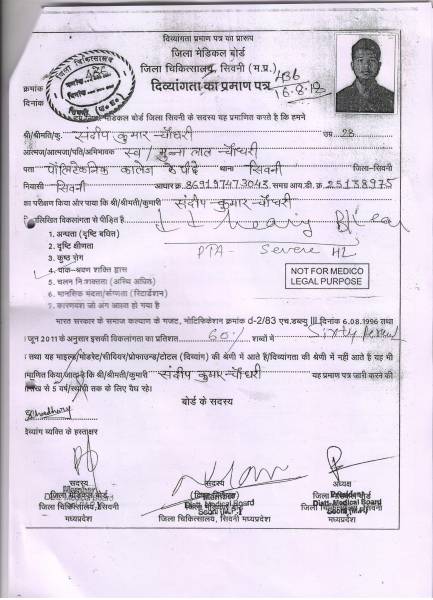 दिव्यांगता प्रमाण पत्र का प्रारूप
जिला मेडिकल बोर्ड
जिला चिकित्सालय, सिवनी (म.प्र.)
क्रमांक दिव्यांगता का प्रमाण पत्र
दिनांक 16.8.18
जिला मेडिकल बोर्ड जिला सिवनी के सदस्य यह प्रमाणित करते है कि हमने
श्री/श्रीमति/कु. संदीप कुमार चौधरी उम्र 28
आत्मज/आत्मजा/पति/अभिभावक स्व/मुन्ना लाल चौधरी
पता पॉलिटेक्निक कालेज के पीछे थाना सिवनी जिला-सिवनी
निवासी सिवनी आधार क्र. 869197473043 समग्र आय.डी. क्र. 25138975
का परीक्षण किया और पाया कि श्री/श्रीमती/कुमारी संदीप कुमार चौधरी
निम्नलिखित विकलांगता से पीड़ित है
1. अन्धता (दृष्टि बाधित)
2. दृष्टि क्षीणता
PTA- Severe HL
3. कुष्ठ रोग
4. वाक-श्रवण शक्ति ह्रास
5. चलन निःशक्तता (अस्थि अधित)
6. मानसिक मंदता/रूग्णता (रिटार्डेशन)
NOT FOR MEDICO
LEGAL PURPOSE
भारत सरकार के समाज कल्याण के गजट, नोटिफिकेशन क्रमांक d-2/83 एच.डब्ल्यु III दिनांक 6.08.1996 तथा
जून 2011 के अनुसार इसकी विकलांगता का प्रतिशत 60% शब्दों में Sixty
तथा यह माइल्ड/मोडरेट/सीवियर/प्रोफाउन्ड/टोटल (दिव्यांग) की श्रेणी में आते हैं/दिव्यांगता की श्रेणी में नही आते है यह भी
प्रमाणित किया जाता है कि श्री/श्रीमती/कुमारी संदीप कुमार चौधरी यह प्रमाण पत्र जारी करने की
तारीख से 5 वर्ष/स्थायी तक के लिए वैध रहे।
बोर्ड के सदस्य
दिव्यांग व्यक्ति के हस्ताक्षर
सदस्य सदस्य अध्यक्ष
जिला मेडिकल बोर्ड जिला मेडिकल बोर्ड जिला मेडिकल बोर्ड
जिला चिकित्सालय, सिवनी जिला चिकित्सालय, सिवनी मध्यप्रदेश जिला चिकित्सालय, सिवनी
मध्यप्रदेश मध्यप्रदेश